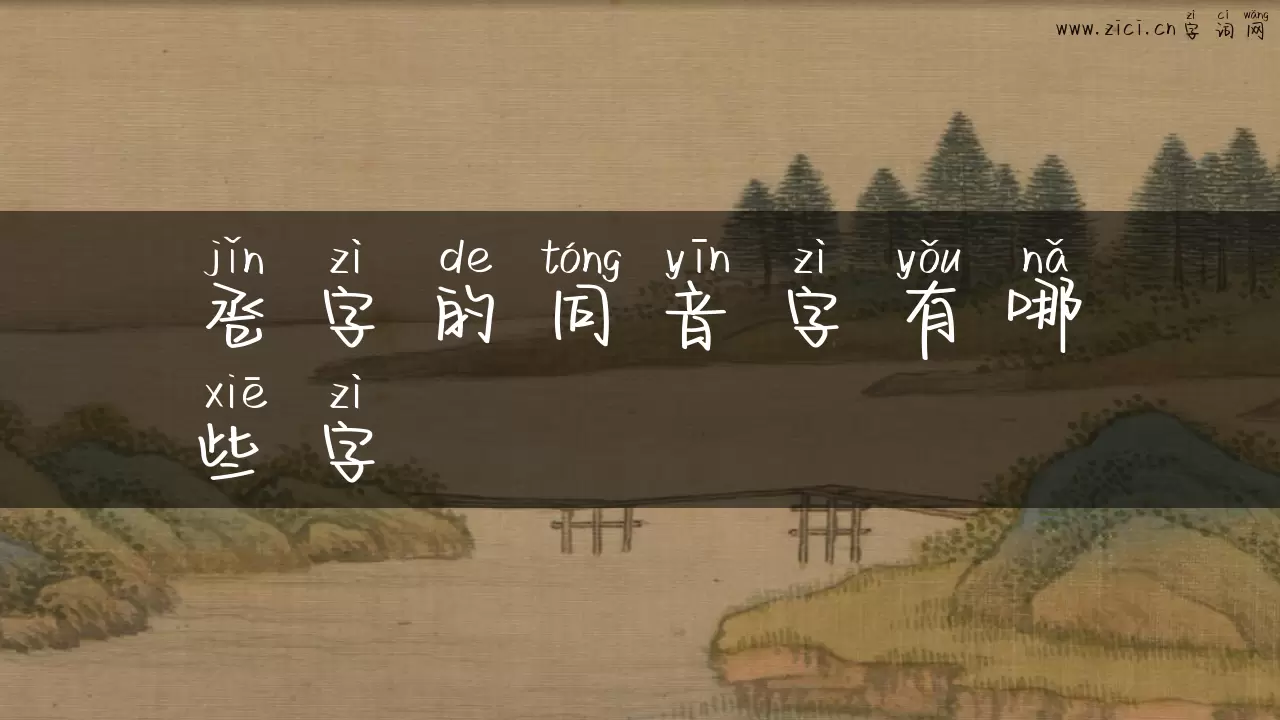 zì cí wǎng
www.zici.cn 字词网
jǐn zì de tóng yīn zì yǒu nǎ
卺字的同音字有哪
xiē zì
些字